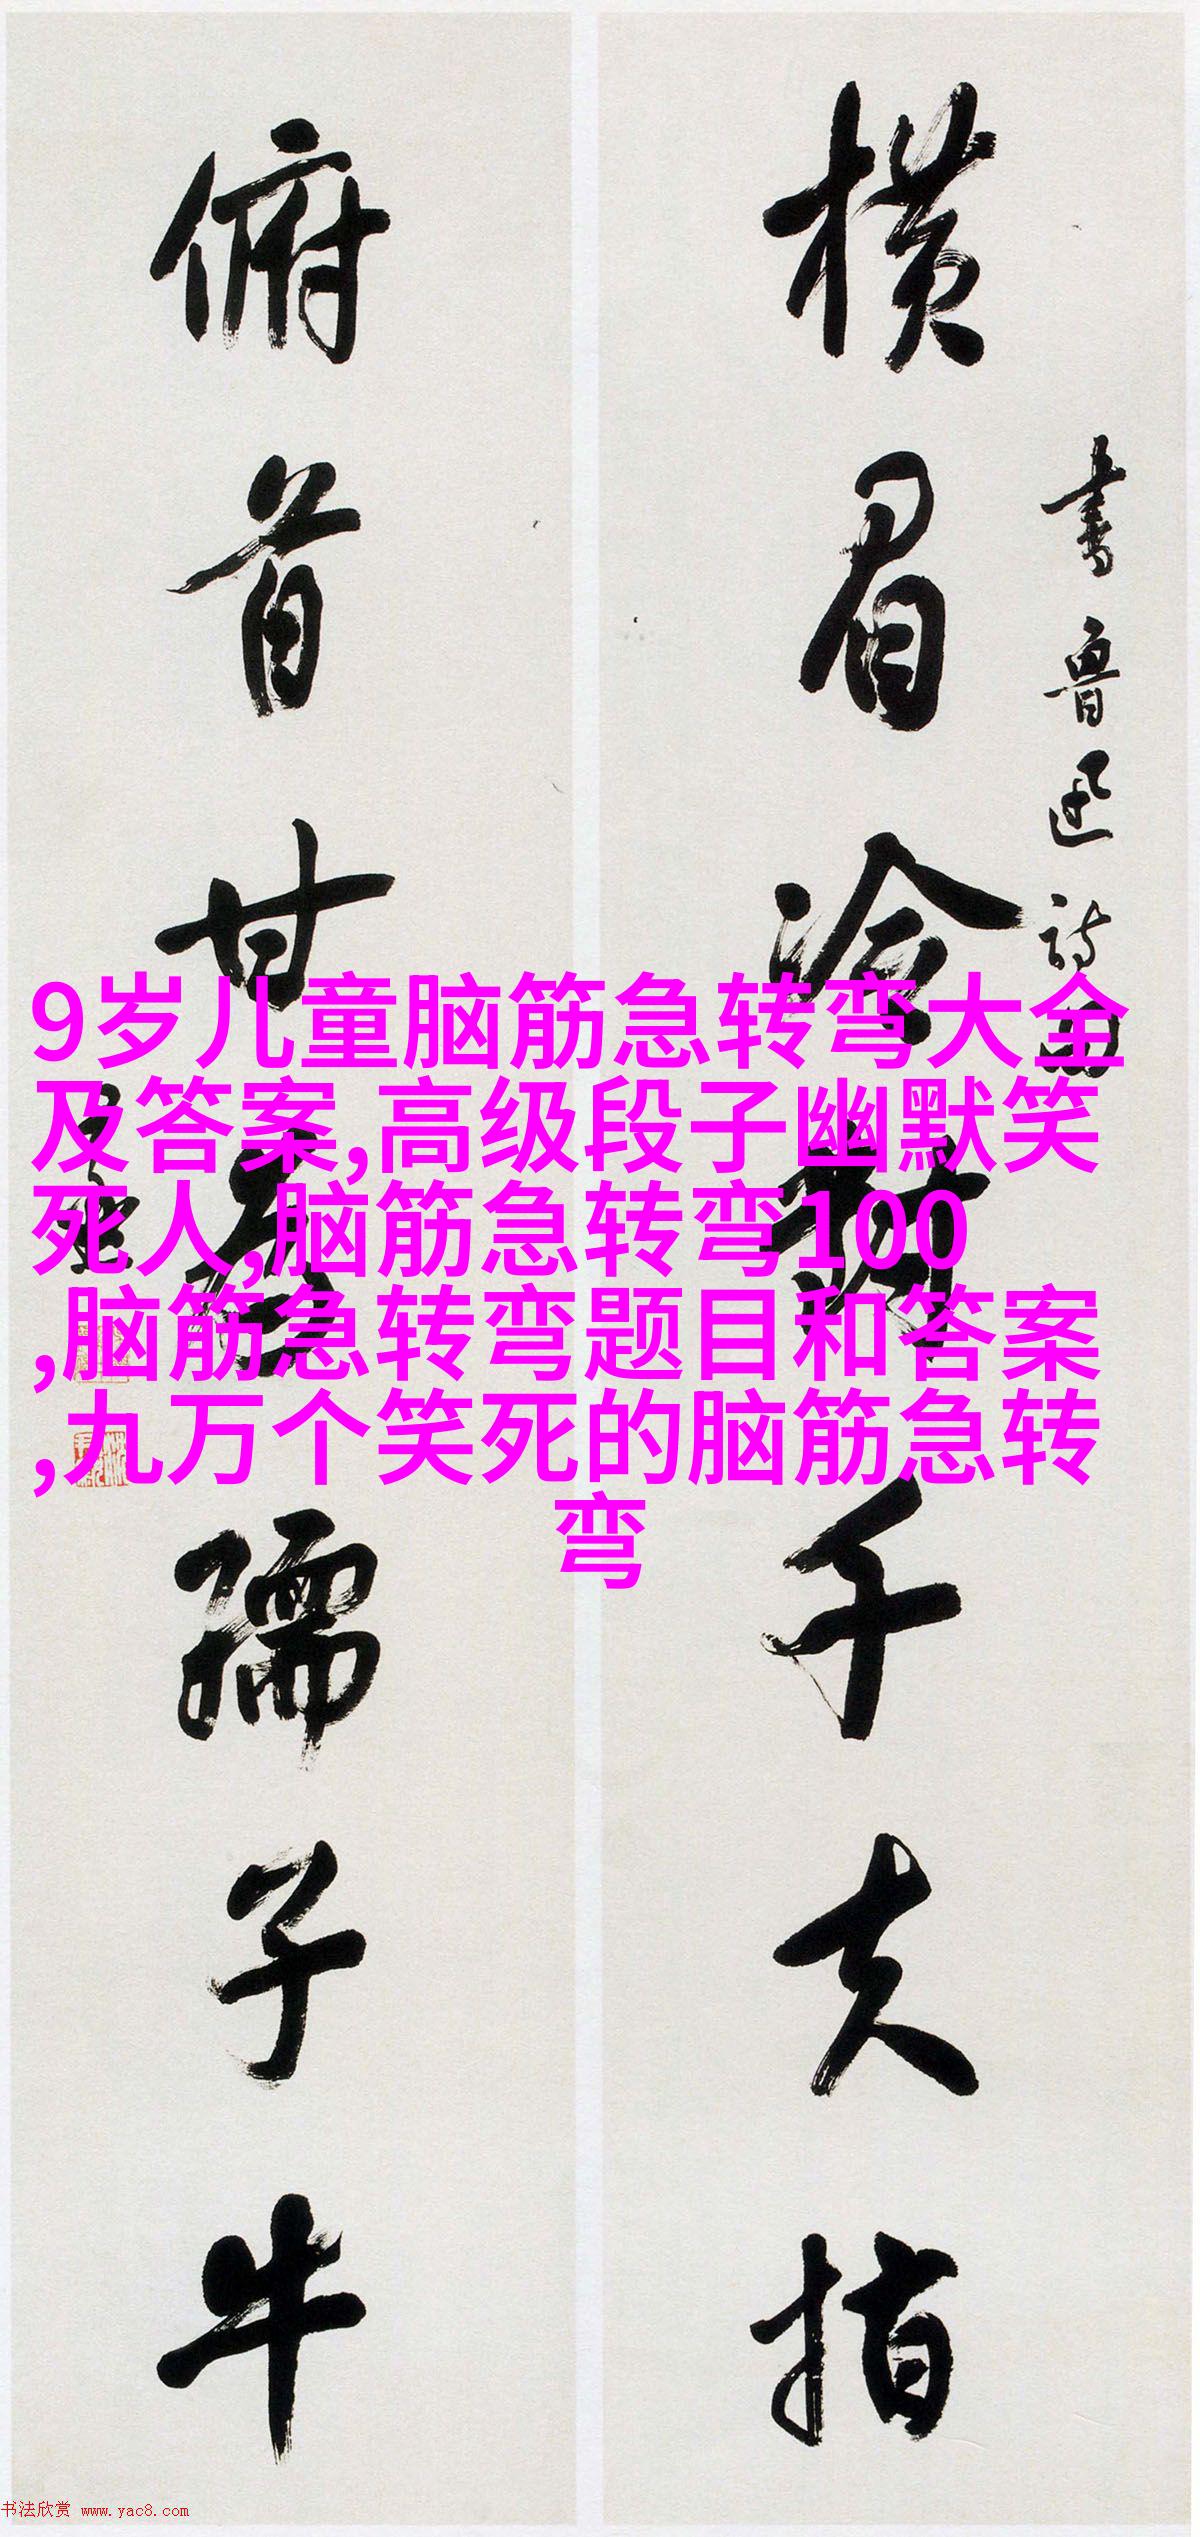 横眉冷对千夫指
书鲁迅诗句
俯首甘为孺子牛
9岁儿童脑筋急转弯大全
及答案,高级段子幽默笑
死人,脑筋急转弯100
,脑筋急转弯题目和答案
,九万个笑死的脑筋急转
弯
书法欣赏 www.yac8.com